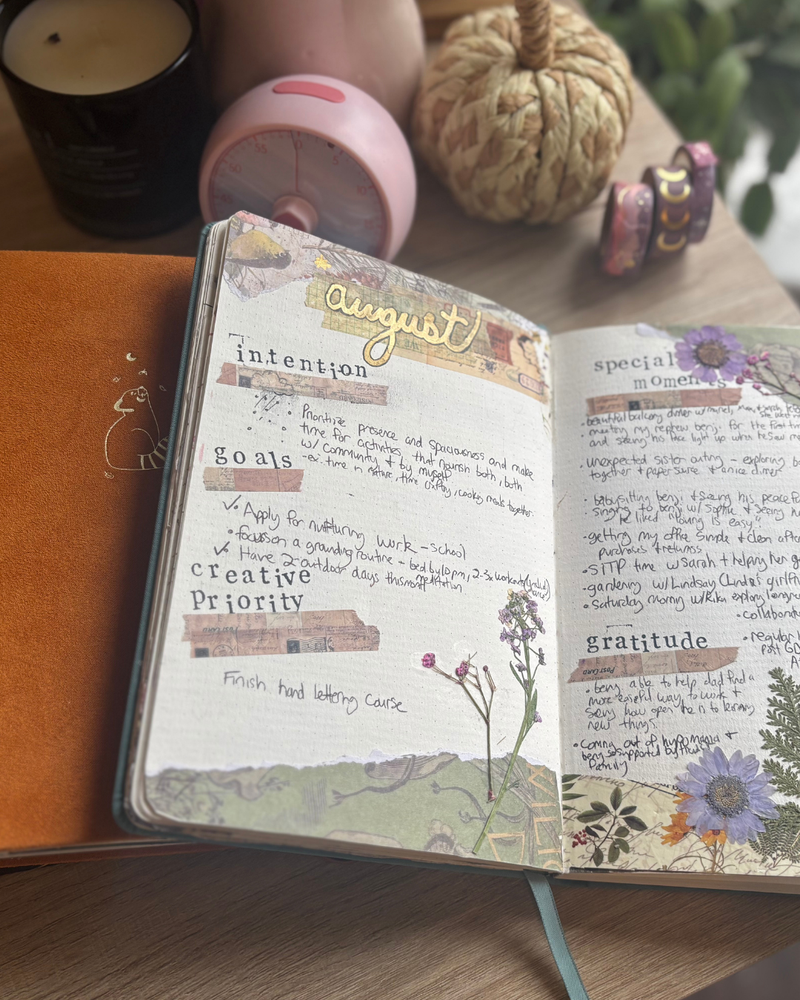 august
intention
Prioritize presence and spaciousness and make
time for activities that nourish both, both
w/ community & by myself
-ex. time in nature, time crafting, cooking meals together
goals
✓ Apply for nurturing work - school
• focus on a grounding routine - bed by 10pm, 2-3x workouts
✓ Have 2 outdoor days this month
meditation
creative
priority
POST CARD
Finish hand lettering course
WILD
special
moments
• beautiful balcony dinner w/
• meeting my nephew benji for the first time
and seeing his face light up when he saw
• unexpected sister outing - exploring
together + paper source + a nice dinner
• babysitting benji + seeing his peace
singing to benji w/ Sophie + seeing
he liked "moving is easy"
• getting my office simple + clean after
purchases + returns
• SITP time w Sarah + helping her
• gardening w/ Lindsay
• Saturday morning w/ Kiku exploring
• collaborat
gratitude
POSTCARD
• regular
post
• being able to help dad find a
more way to work +
seeing how open he is to learning
new things.
• coming out of hypomania +
being so supported by
family